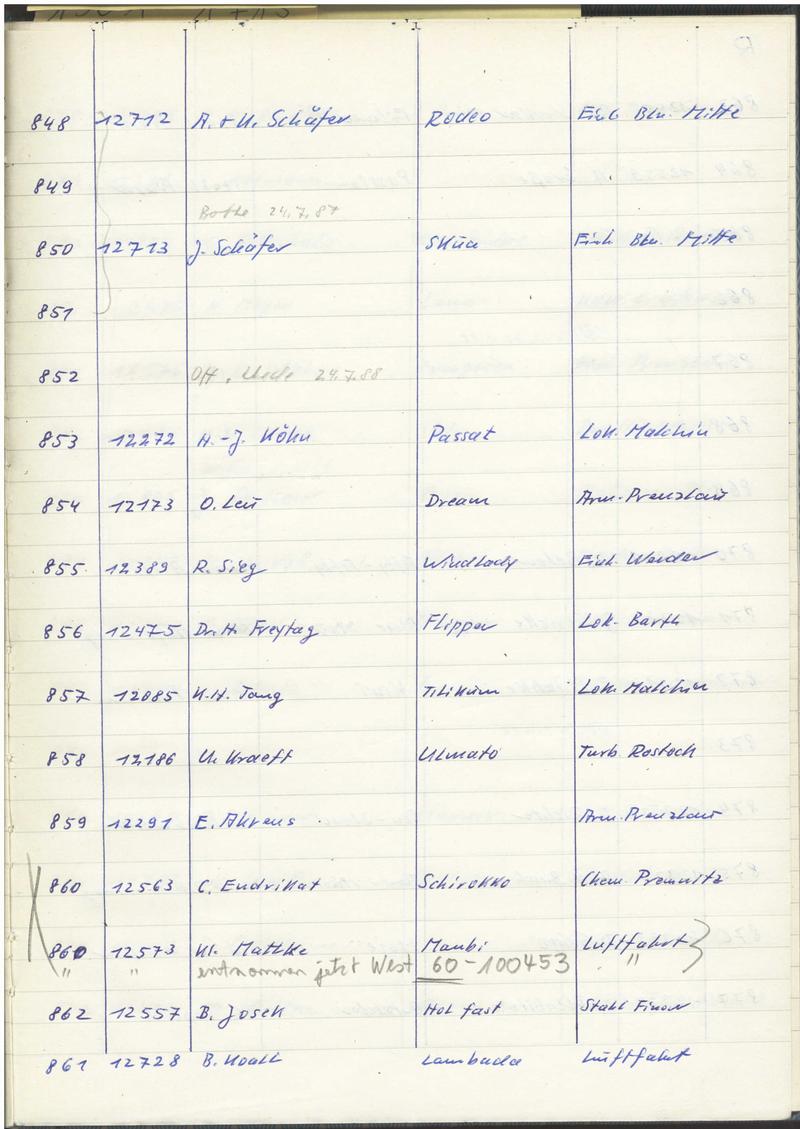 848 12712 A. + U. Schäfer Rodeo Einh. Bln. Mitte
849
Bothe 24.7.87
850 12713 J. Schäfer Skua Einh. Bln. Mitte
851
852 Off. 24.7.88
853 12272 H.-J. Köhn Passat Lok. Malchin
854 12173 O. Leu Dream Arm. Prenzlau
855 12389 R. Sieg Windlady Einh. Werder
856 12475 Dr. H. Freytag Flipper Lok. Barth
857 12085 K.H. Tang Tilikum Lok. Malchin
858 12186 U. Kraeft Ulmato Turb. Rostock
859 12291 E. Ahrens Arm. Prenzlau
860 12563 C. Endrikat Schirokko Chem. Premnitz
860 12573 Kl. Mattke Maubi Luftfahrt
" " entnommen jetzt West 60-100453 "
862 12557 B. Josek Hol fast Stahl Finow
861 12728 B. Lambada Luftfahrt